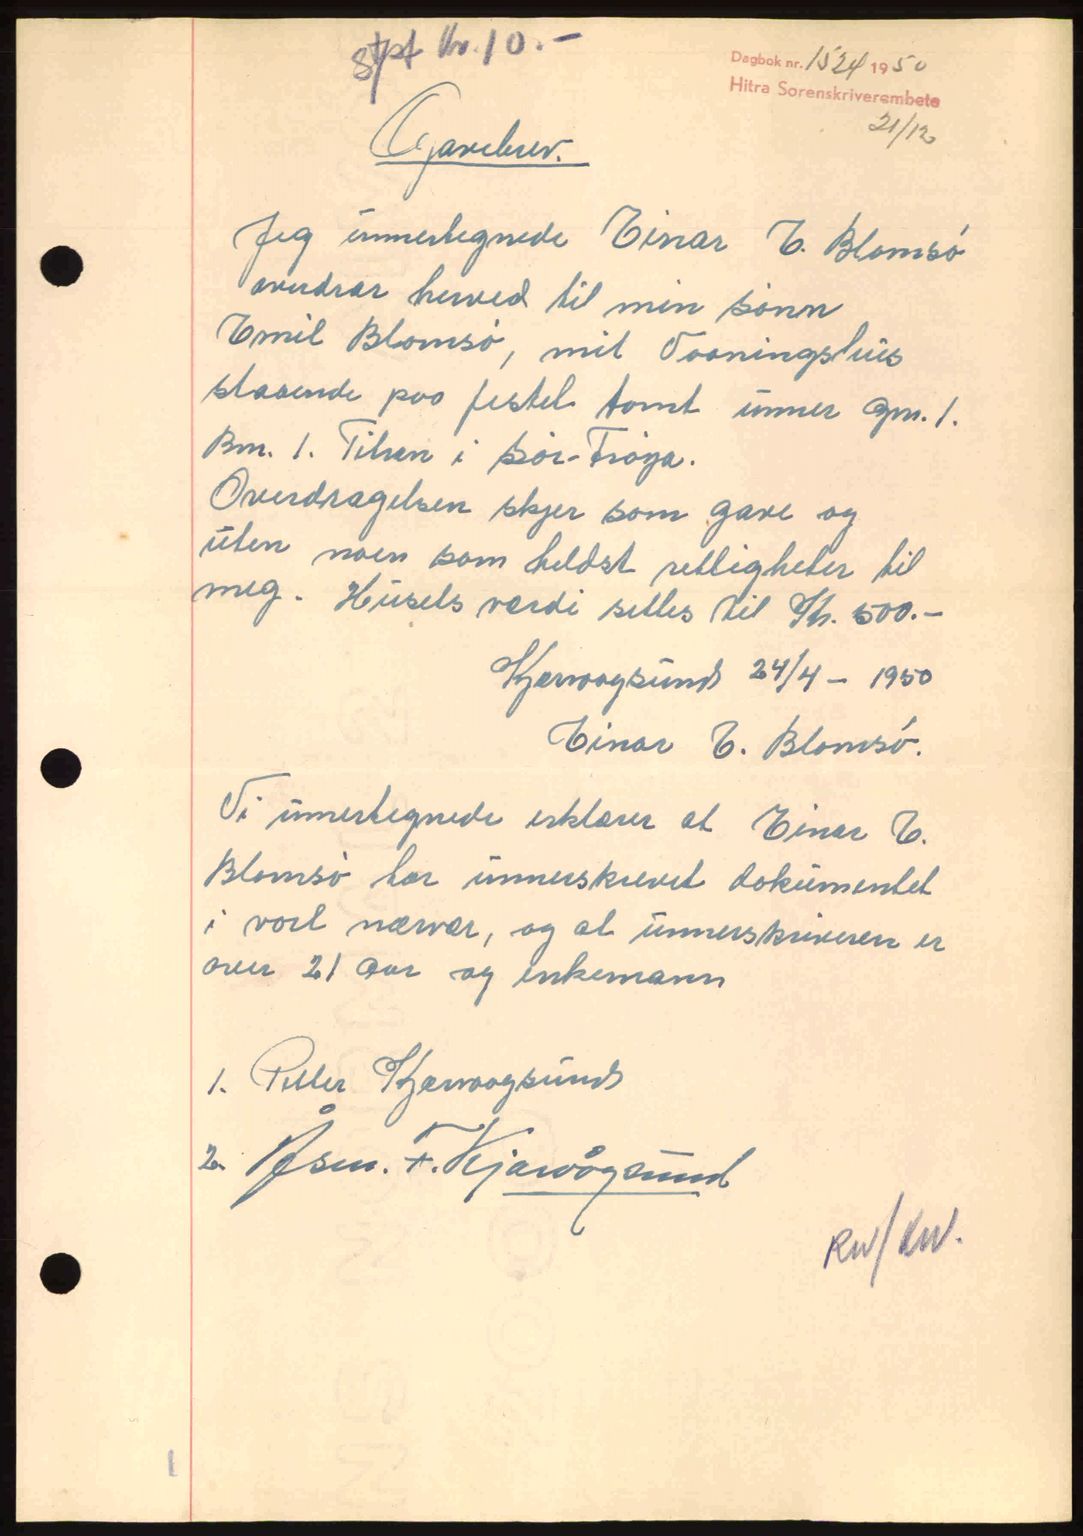 Stpl kr. 10.-
Dagbok nr. 1524 1950
Hitra Sorenskriverembete
21/12
Gavebrev.
Jeg unnertegnede Einar E. Blomsö
overdrar herved til min sönn
Emil Blomsö, mit Vooningshus
staaende paa festet tomt unner Gm. 1.
Bm. 1. Titran i Sör-Fröya.
Overdragelsen skjer som gave og
uten noen som heldst rettigheter til
meg. Husets værdi settes til Kr. 500.-
Kjærvaagsund 24/4 - 1950
Einar E. Blomsö.
Vi unnertegnede erklærer at Einar E.
Blomsö har unnerskrevet dokumentet
i vort nærvær, og at unnerskriveren er
over 21 aar og enkemann
1. Petter Kjærvaagsund
2. Åsm. F. Kjærvågsund
RW/KW.